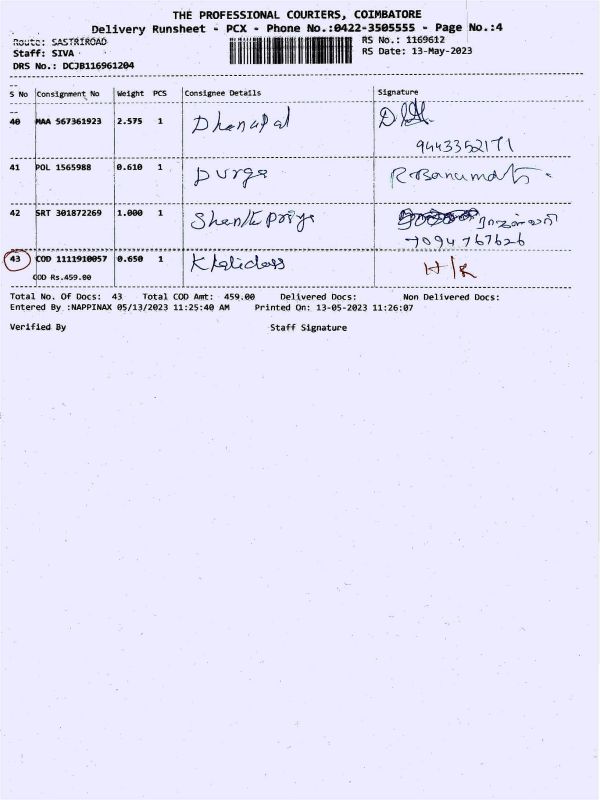 THE PROFESSIONAL COURIERS, COIMBATORE
Delivery Runsheet - PCX - Phone No.:0422-3505555 - Page No.:4
Route: SASTRIROAD
RS No.: 1169612
Staff: SIVA
RS Date: 13-May-2023
DRS No.: DCJB116961204
S No Consignment No Weight PCS Consignee Details Signature
40 MAA 567361923 2.575 1 Dhanapal
9443352171
41 POL 1565988 0.610 1 Durga R. Banumathi
42 SRT 301872269 1.000 1 Shanthi priya
7094767626
43 COD 1111910057 0.650 1 Khalidass H/R
COD Rs.459.00
Total No. Of Docs: 43 Total COD Amt: 459.00 Delivered Docs: Non Delivered Docs:
Entered By :NAPPINAX 05/13/2023 11:25:40 AM Printed On: 13-05-2023 11:26:07
Verified By Staff Signature